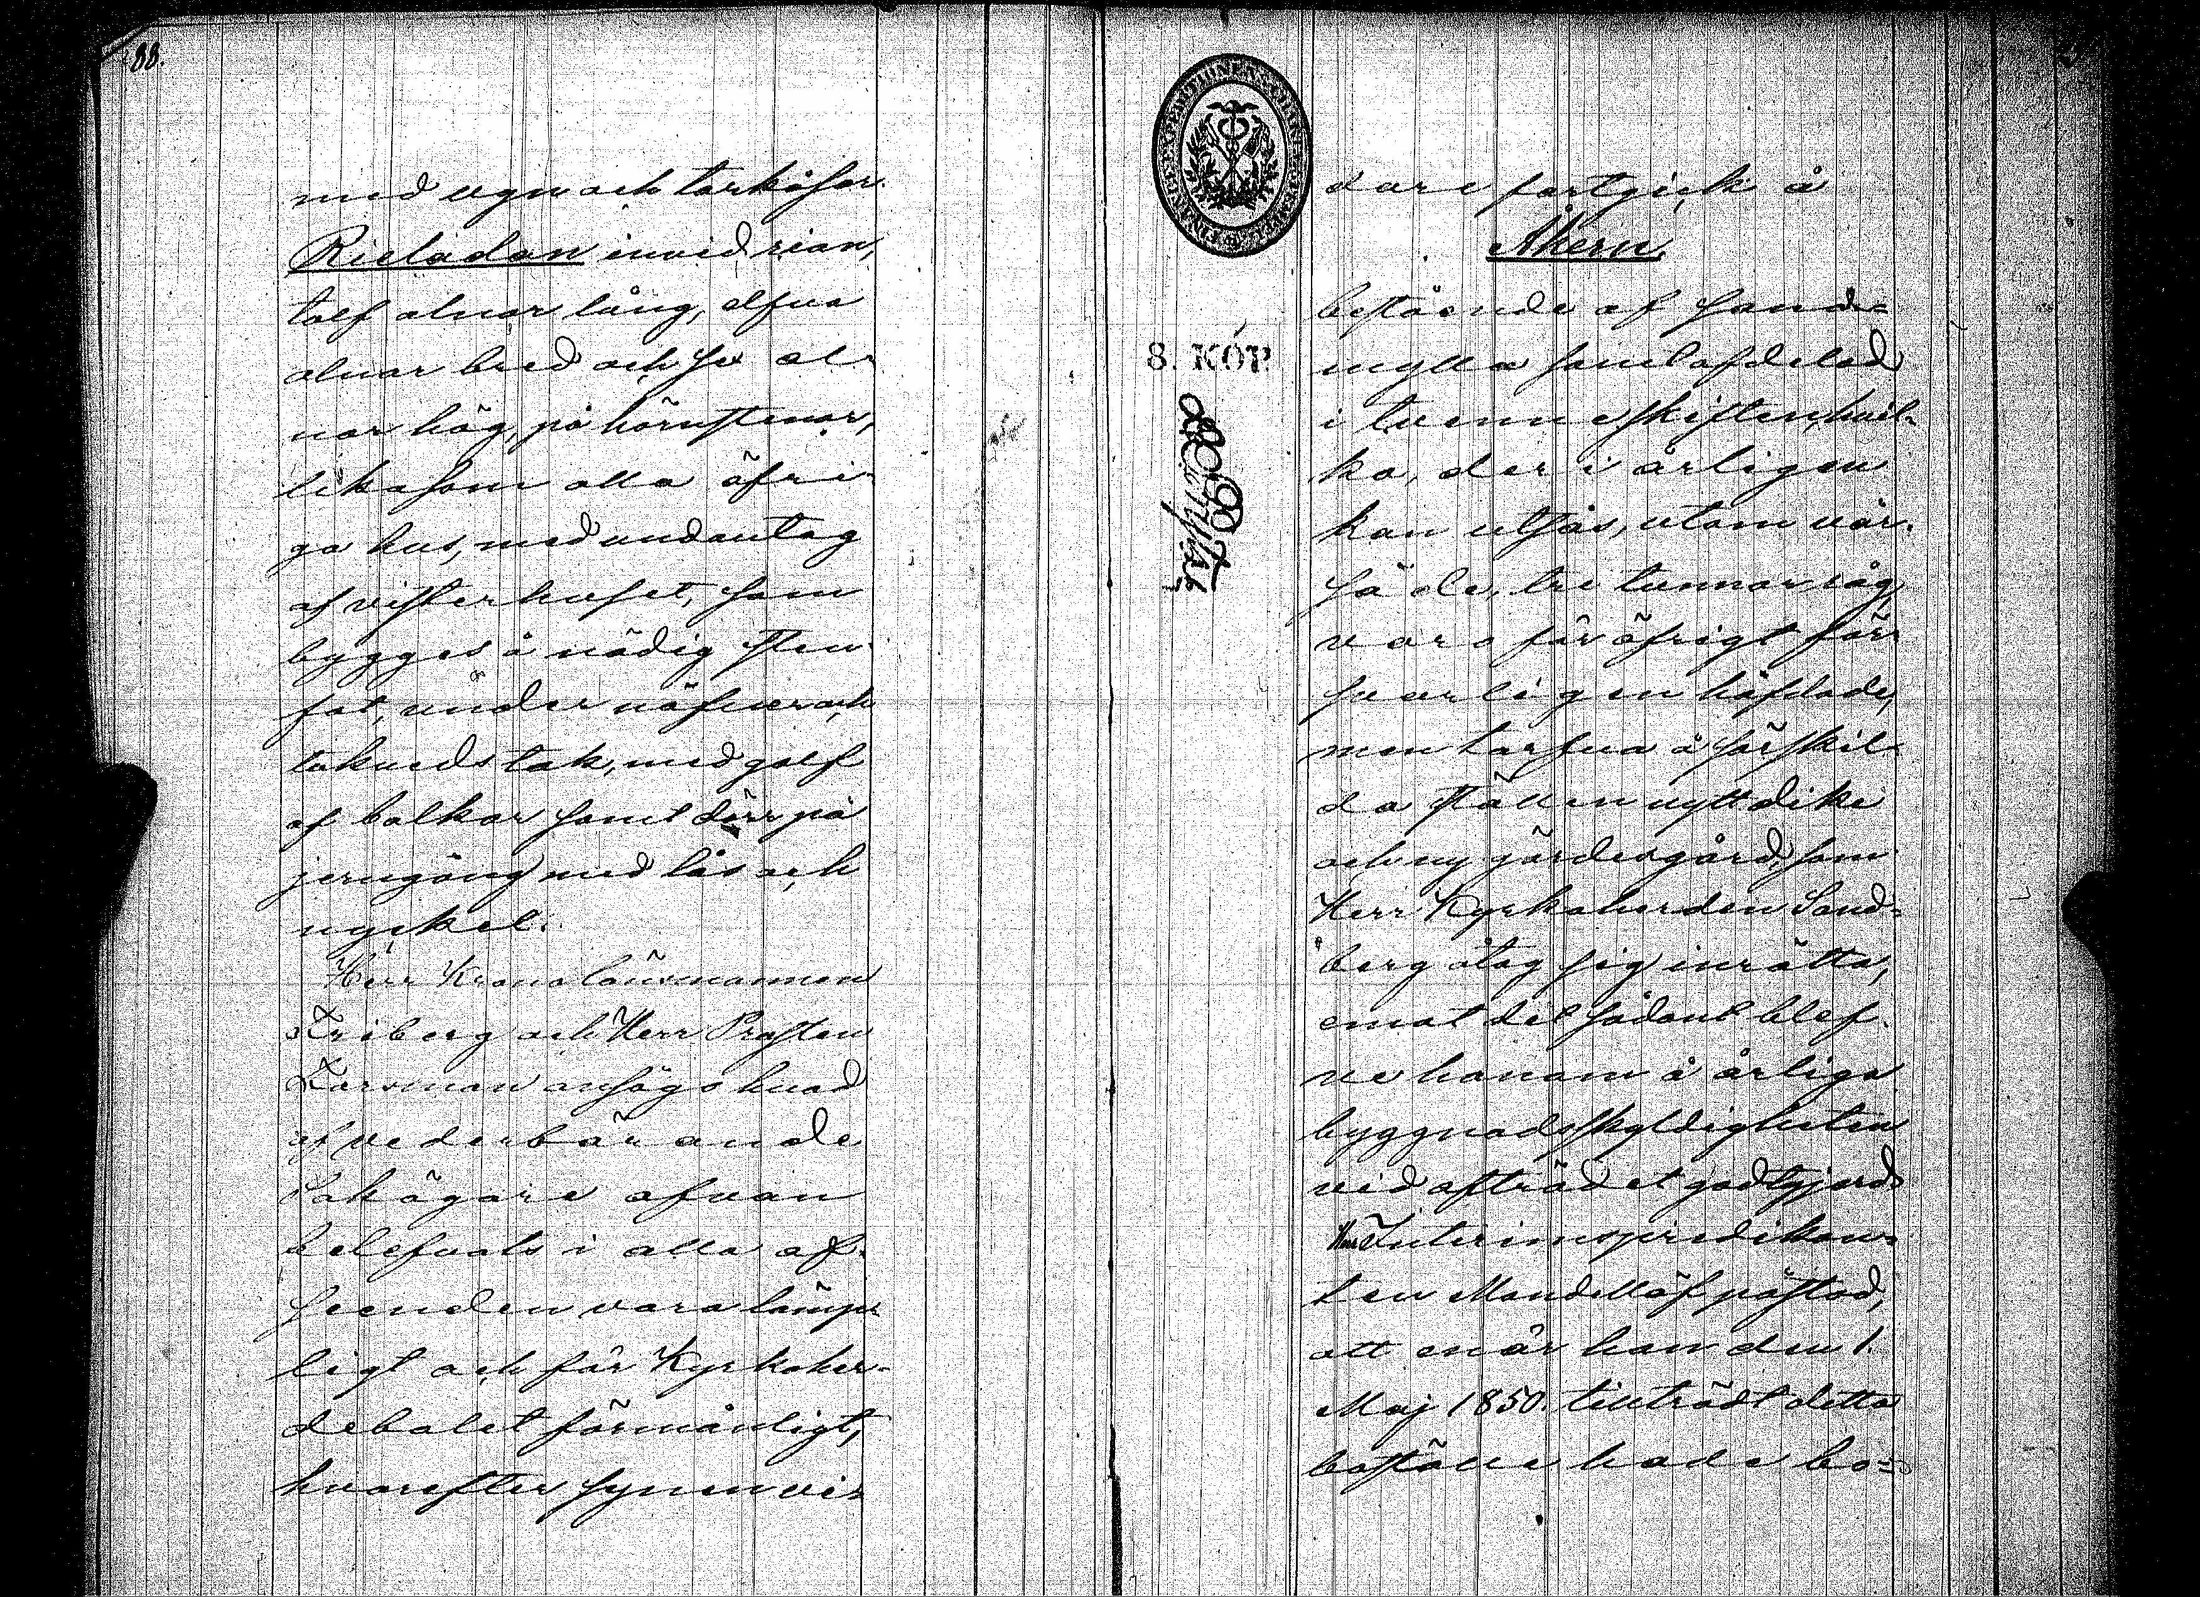 88.
med ugn och torkåsar.
Rieladan invid rian,
tolf alnar lång, elfva
alnar bred och sex al-
nar hög, på hörnstenar,
likasom alla öfri-
ga hus, med undantag
af visterhuset, som
bygges å nödig sten-
fot, under näfver och
takvedstak, med golf
af balkar samt dörr på
jerngång med lås och
nyckel.
Herr Kronolänsmannen
Friberg och Herr Prosten
Forsman ansågo hvad
af vederbörande
Sakägare ofvan
belefvats i alla af-
seenden vara lämp-
ligt och för Kyrkoher-
debolet förmånligt,
hvarefter synen vi-
8. KOP.
dare fortgick å
Åkern.
bestående af sand-
mylla samt afdelad
i tvenne skiften, hvil-
ka, der i årligen
kan utsås, utom vår-
säde, tre tunnor råg,
voro för öfrigt för-
svarligen häfdade,
men tarfva å särskil-
da ställen nytt dike
och ny gärdesgård, som
Herr Kyrkoherden Sand-
berg åtog sig inrätta,
emot det sådant blef-
ve honom å årliga
byggnadsskyldigheten
vid afträdet godtgjord
Herr Interimspredikan-
ten Mandellöf påstod,
att enär han den 1.
Maj 1850. tillträdt detta
boställe hade bo-